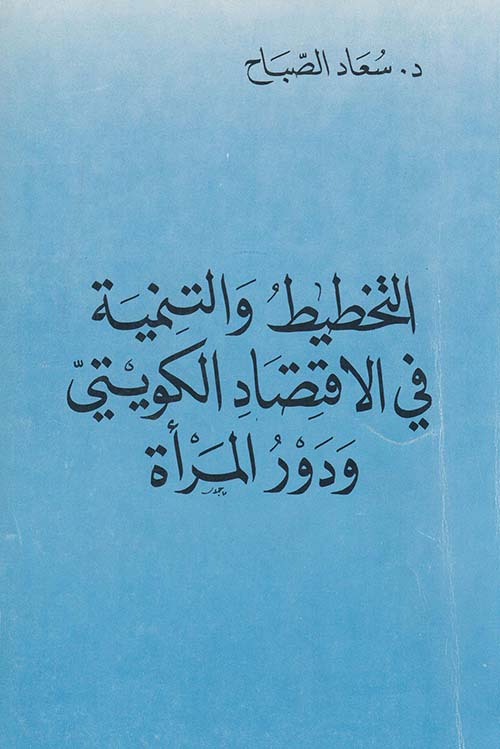 د. سُعَاد الصّبَاح
التخطيطُ وَالتنِميَة
في الاقتِصَادِ الكويْتيّ
وَدَوْرُ المَرْأة